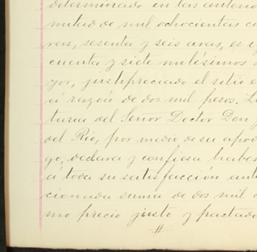 determinado en las anterio
mitad de mil ochocientas c
reas, sesenta y seis aras, es d
cuenta y siete milésimos d
yor, justipreciado el sitio e
á razón de dos mil pesos. La
turia del Señor Doctor Don
del Río, por medio de su apod
ge, declara y confiesa haber
á toda su satisfacción ant
cionada suma de dos mil o
mo precio justo y pactado